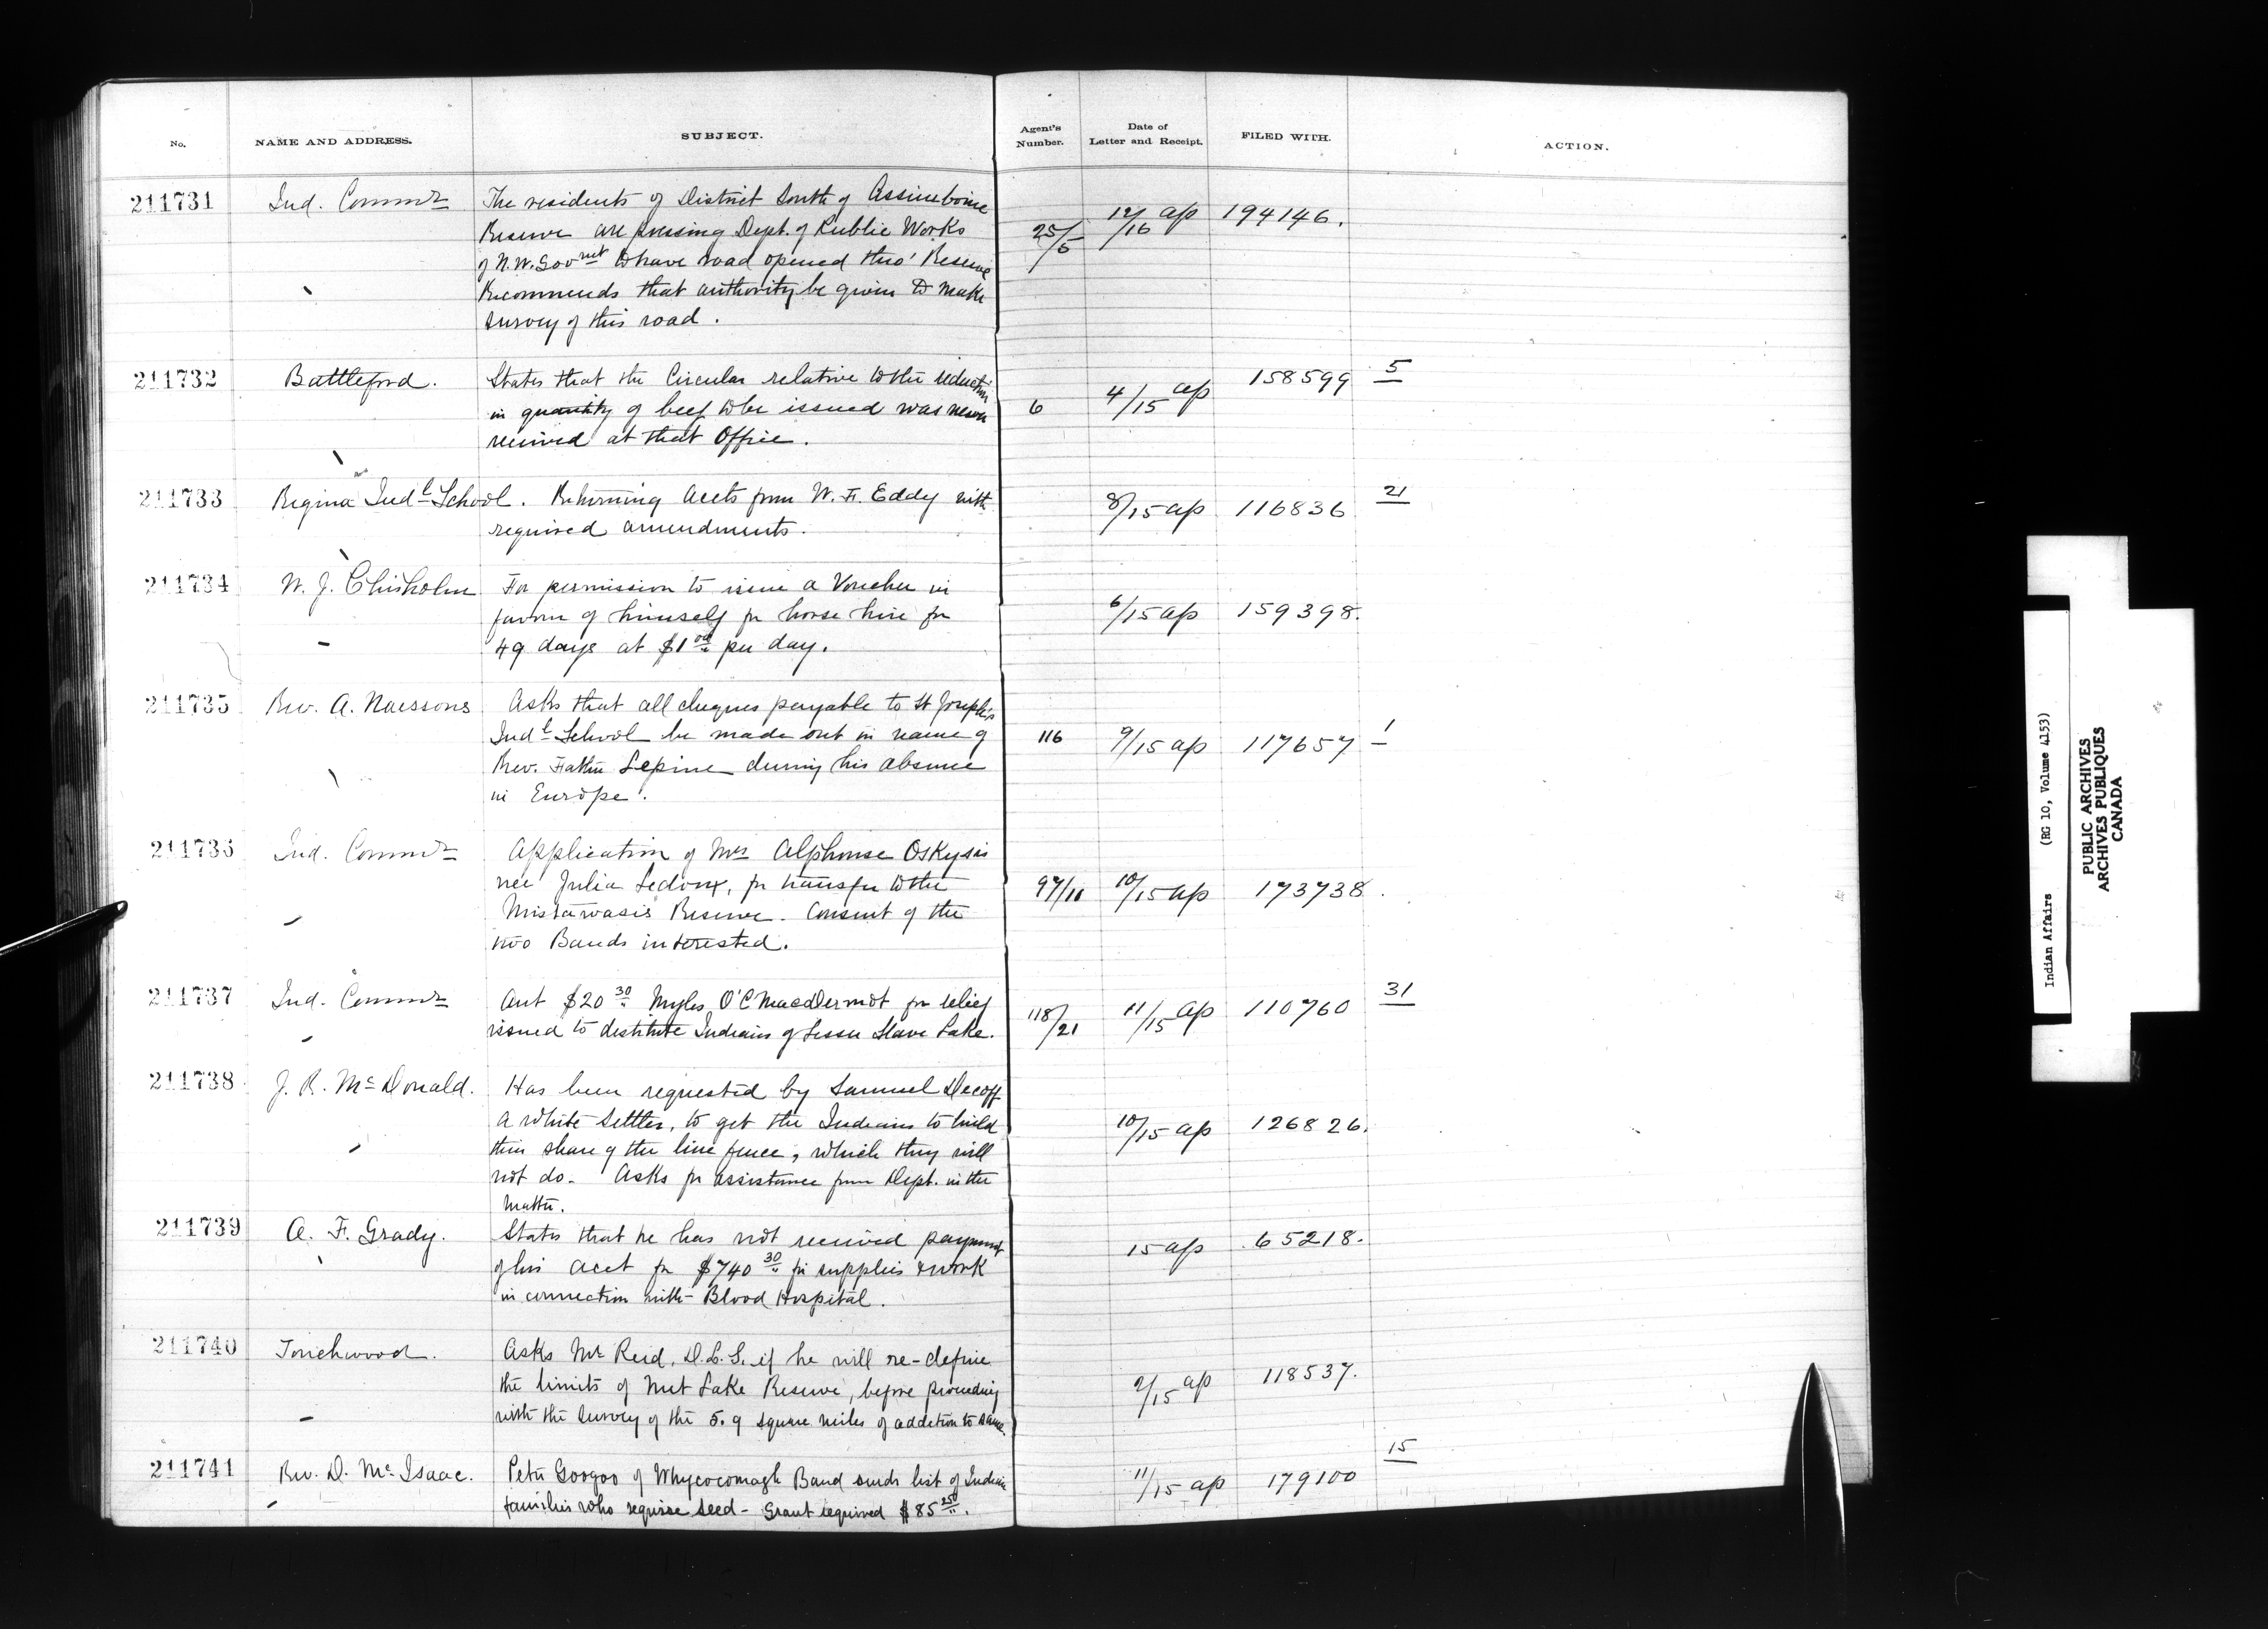 No. NAME AND ADDRESS. SUBJECT. Agent's Number. Date of Letter and Receipt. FILED WITH. ACTION.
211731 Ind. Commr The residents of District South of Assiniboine
Reserve are pressing Dept. of Public Works 25/5 12/16 ap 194146.
of N.W. Govmt to have road opened thro' Reserve
Recommends that authority be given to make
survey of this road.
211732 Battleford. States that the Circular relative to the reduction 158599 5
in quantity of beef to be issued was never 6 4/15 ap
received at that Office.
211733 Regina Indl School. Returning accts from W. F. Eddy with 8/15 ap 116836 21
required amendments.
211734 W. J. Chisholm For permission to issue a Voucher in
favour of himself for horse hire for 6/15 ap 159398.
49 days at $1 00 per day.
211735 Rev. A. Naessens Asks that all cheques payable to St Joseph's
Indl School be made out in name of 116 9/15 ap 117657 1
Rev. Father Lepine during his absence
in Europe.
211736 Ind. Commr Application of Mrs Alphonse Oskysis
nee Julia Ledoux, for transfer to the 97/11 10/15 ap 173738.
Mistawasis Reserve. Consent of the
two Bands interested.
211737 Ind. Commr Aut $20 30 Myles O'C MacdDermot for relief 118/21 11/15 ap 110760 31
issued to destitute Indians of Lesser Slave Lake.
211738 J. R. McDonald. Has been requested by Samuel Decoff
a white settler, to get the Indians to build 10/15 ap 126826.
their share of the line fence, which they will
not do. Asks for assistance from Dept. in the
matter.
211739 A. F. Grady. States that he has not received payment 15 ap 65218.
of his acct for $740 30 for supplies & work
in connection with Blood Hospital.
211740 Touchwood. Asks Mr Reid, D.L.S. if he will re-define
the limits of Nut Lake Reserve, before proceeding 2/15 ap 118537.
with the survey of the 5.9 square miles of addition to same.
211741 Rev. D. McIsaac. Peter Googoo of Whycocomagh Band sends list of Indian 11/15 ap 179100 15
families who require seed - Grant required $85 250.
Indian Affairs (RG 10, Volume 4153)
PUBLIC ARCHIVES
ARCHIVES PUBLIQUES
CANADA